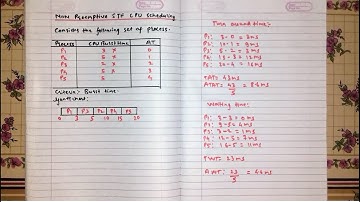 Non Preemptive SJF CPU Scheduling
Consider the following set of process.
Process CPU Burst time AT
P1 3 x 0
P2 5 x 1
P3 2 x 2
P4 5 x 3
P5 5 4
Criteria:- Burst time
P1 P3 P2 P4 P5
0 3 5 10 15 20
Turn around time:-
P1: 3-0 = 3ms
P2: 10-1 = 9ms
P3: 5-2 = 3ms
P4: 15-3 = 12ms
P5: 20-4 = 16ms
TAT: 43ms
ATAT: 43/5 = 8.6ms
Waiting time:-
P1: 3-3 = 0ms
P2: 9-5 = 4ms
P3: 3-2 = 1ms
P4: 12-5 = 7ms
P5: 16-5 = 11ms
TWT: 23ms
AWT: 23/5 = 4.6ms